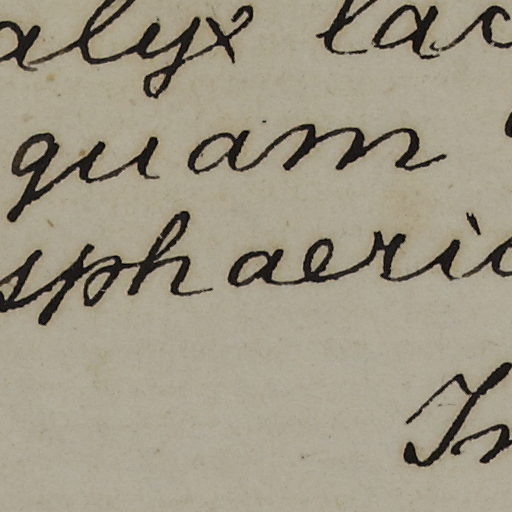 alyx lac
quam
sphaeric
In